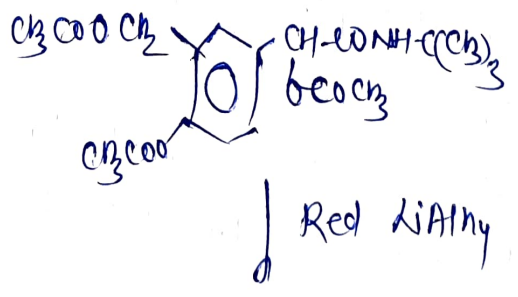 CH3COOCH2 CH-CONH-C(CH3)3
OCOCH3
CH3COO
Red LiAlH4